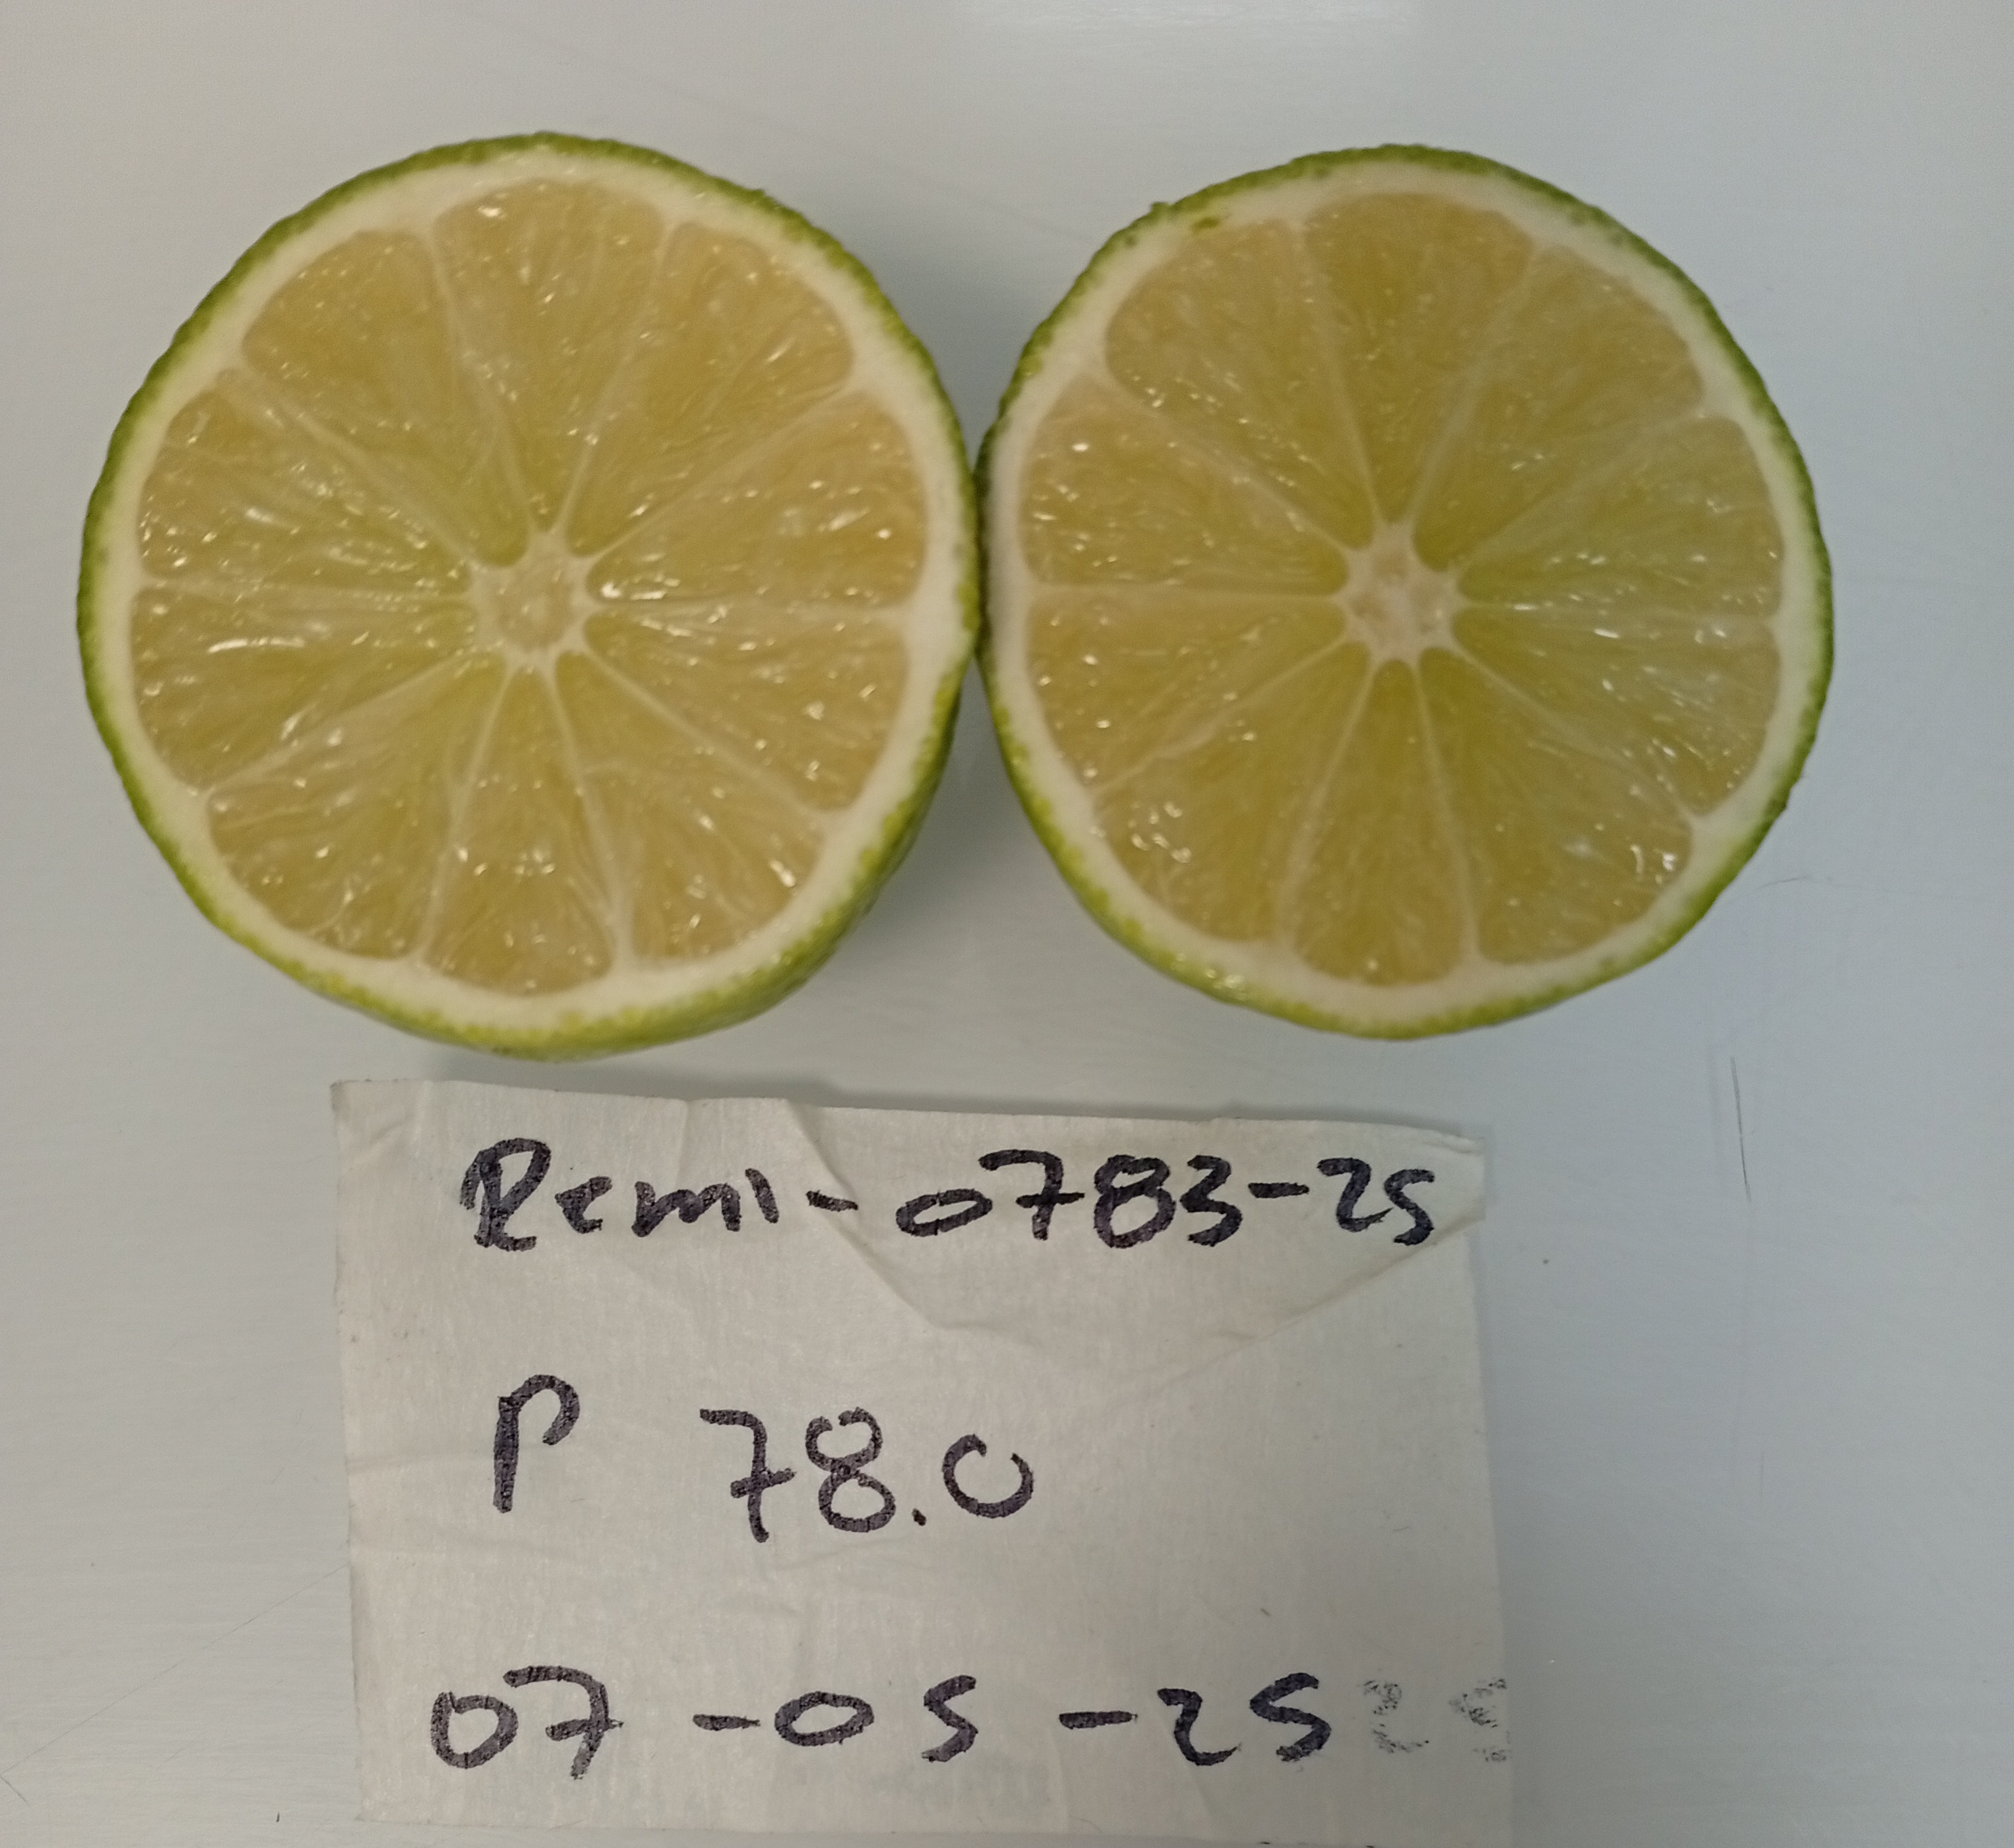 Remi-0783-25
P 78.0
07-05-25